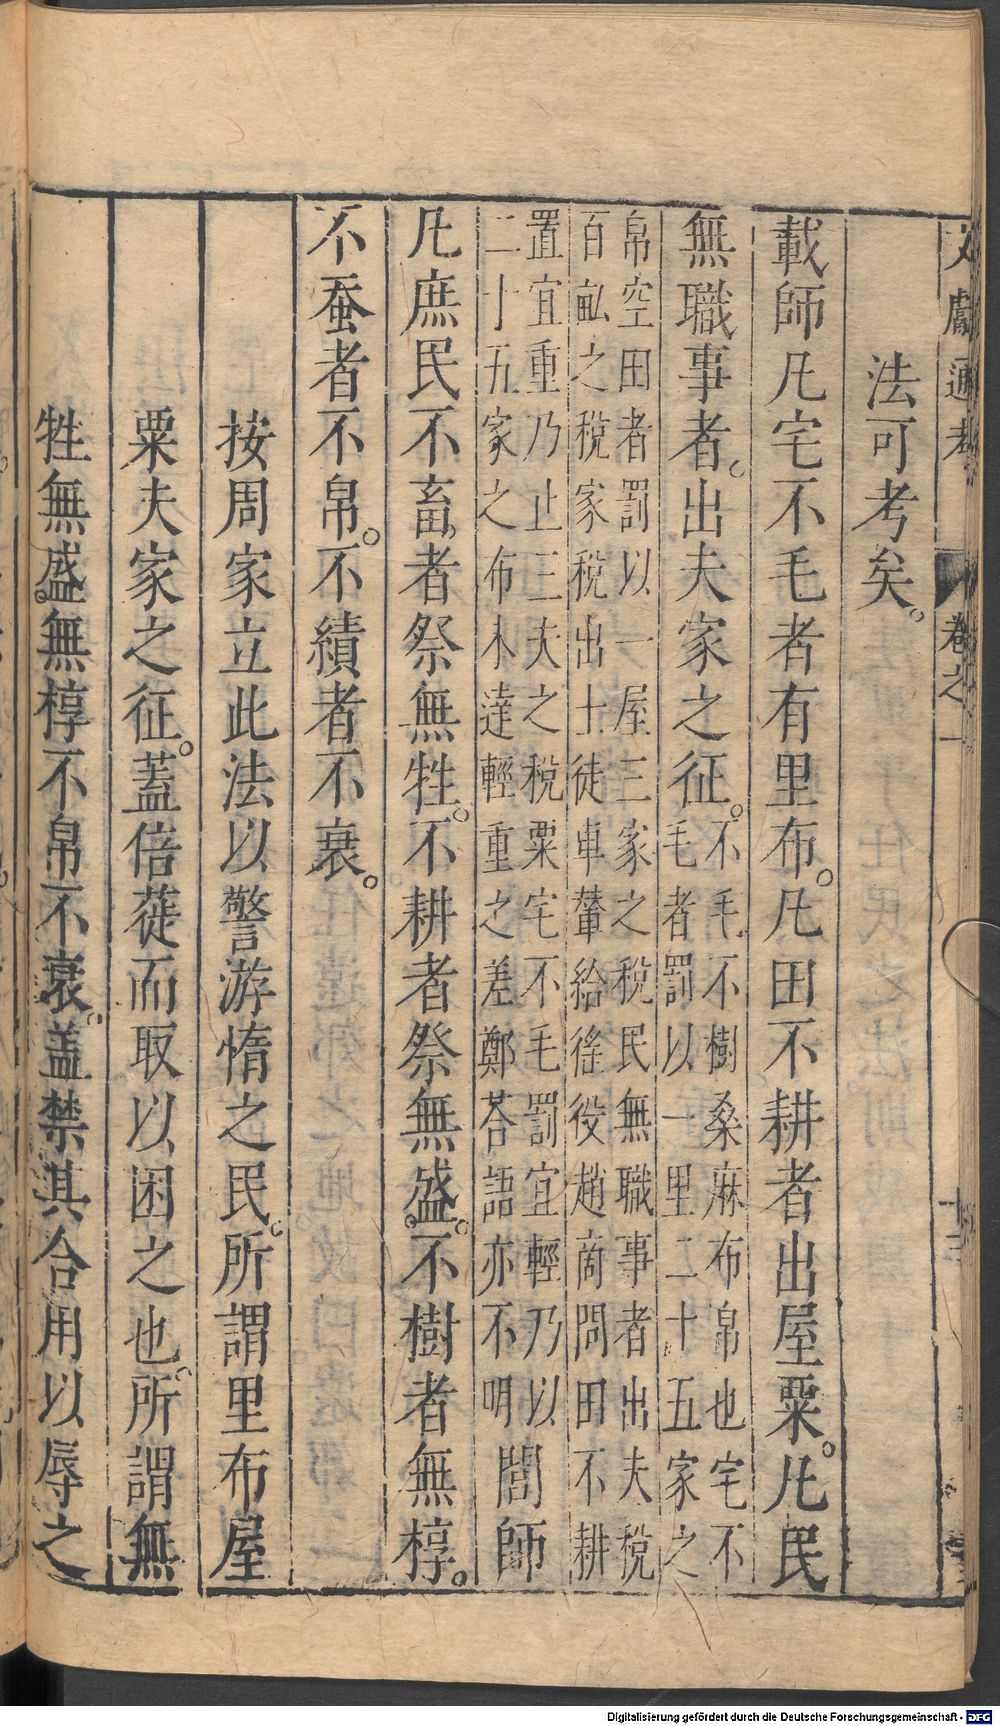 文獻通考 卷之一 十三
法可考矣。
載師凡宅不毛者有里布。凡田不耕者出屋粟。凡民
無職事者。出夫家之征。不毛不樹桑麻布帛也宅不
毛者罰以一里二十五家之
帛空田者罰以一屋三家之稅民無職事者出夫稅
百畆之稅家稅出士徒車輦給徭役趙商問田不耕
置宜重乃止三夫之稅粟宅不毛罰宜輕乃以
二十五家之布木達輕重之差鄭荅語亦不明 閭師
凡庶民不畜者祭無牲。不耕者祭無盛。不樹者無椁。
不蚕者不帛。不績者不衰。
按周家立此法以警游惰之民。所謂里布屋
粟夫家之征。蓋倍蓰而取以困之也。所謂無
牲無盛。無椁不帛不衰。盖禁其合用以辱之
Digitalisierung gefördert durch die Deutsche Forschungsgemeinschaft - DFG